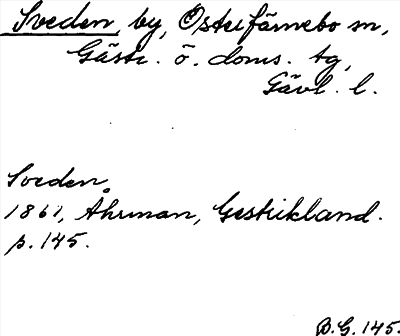 Sveden, by, Österfärnebo sn,
Gästr. ö. doms. tg,
Gävl. l.
Sveden
1861, Åhrman, Gestrikland.
p. 145.
B.G. 145.